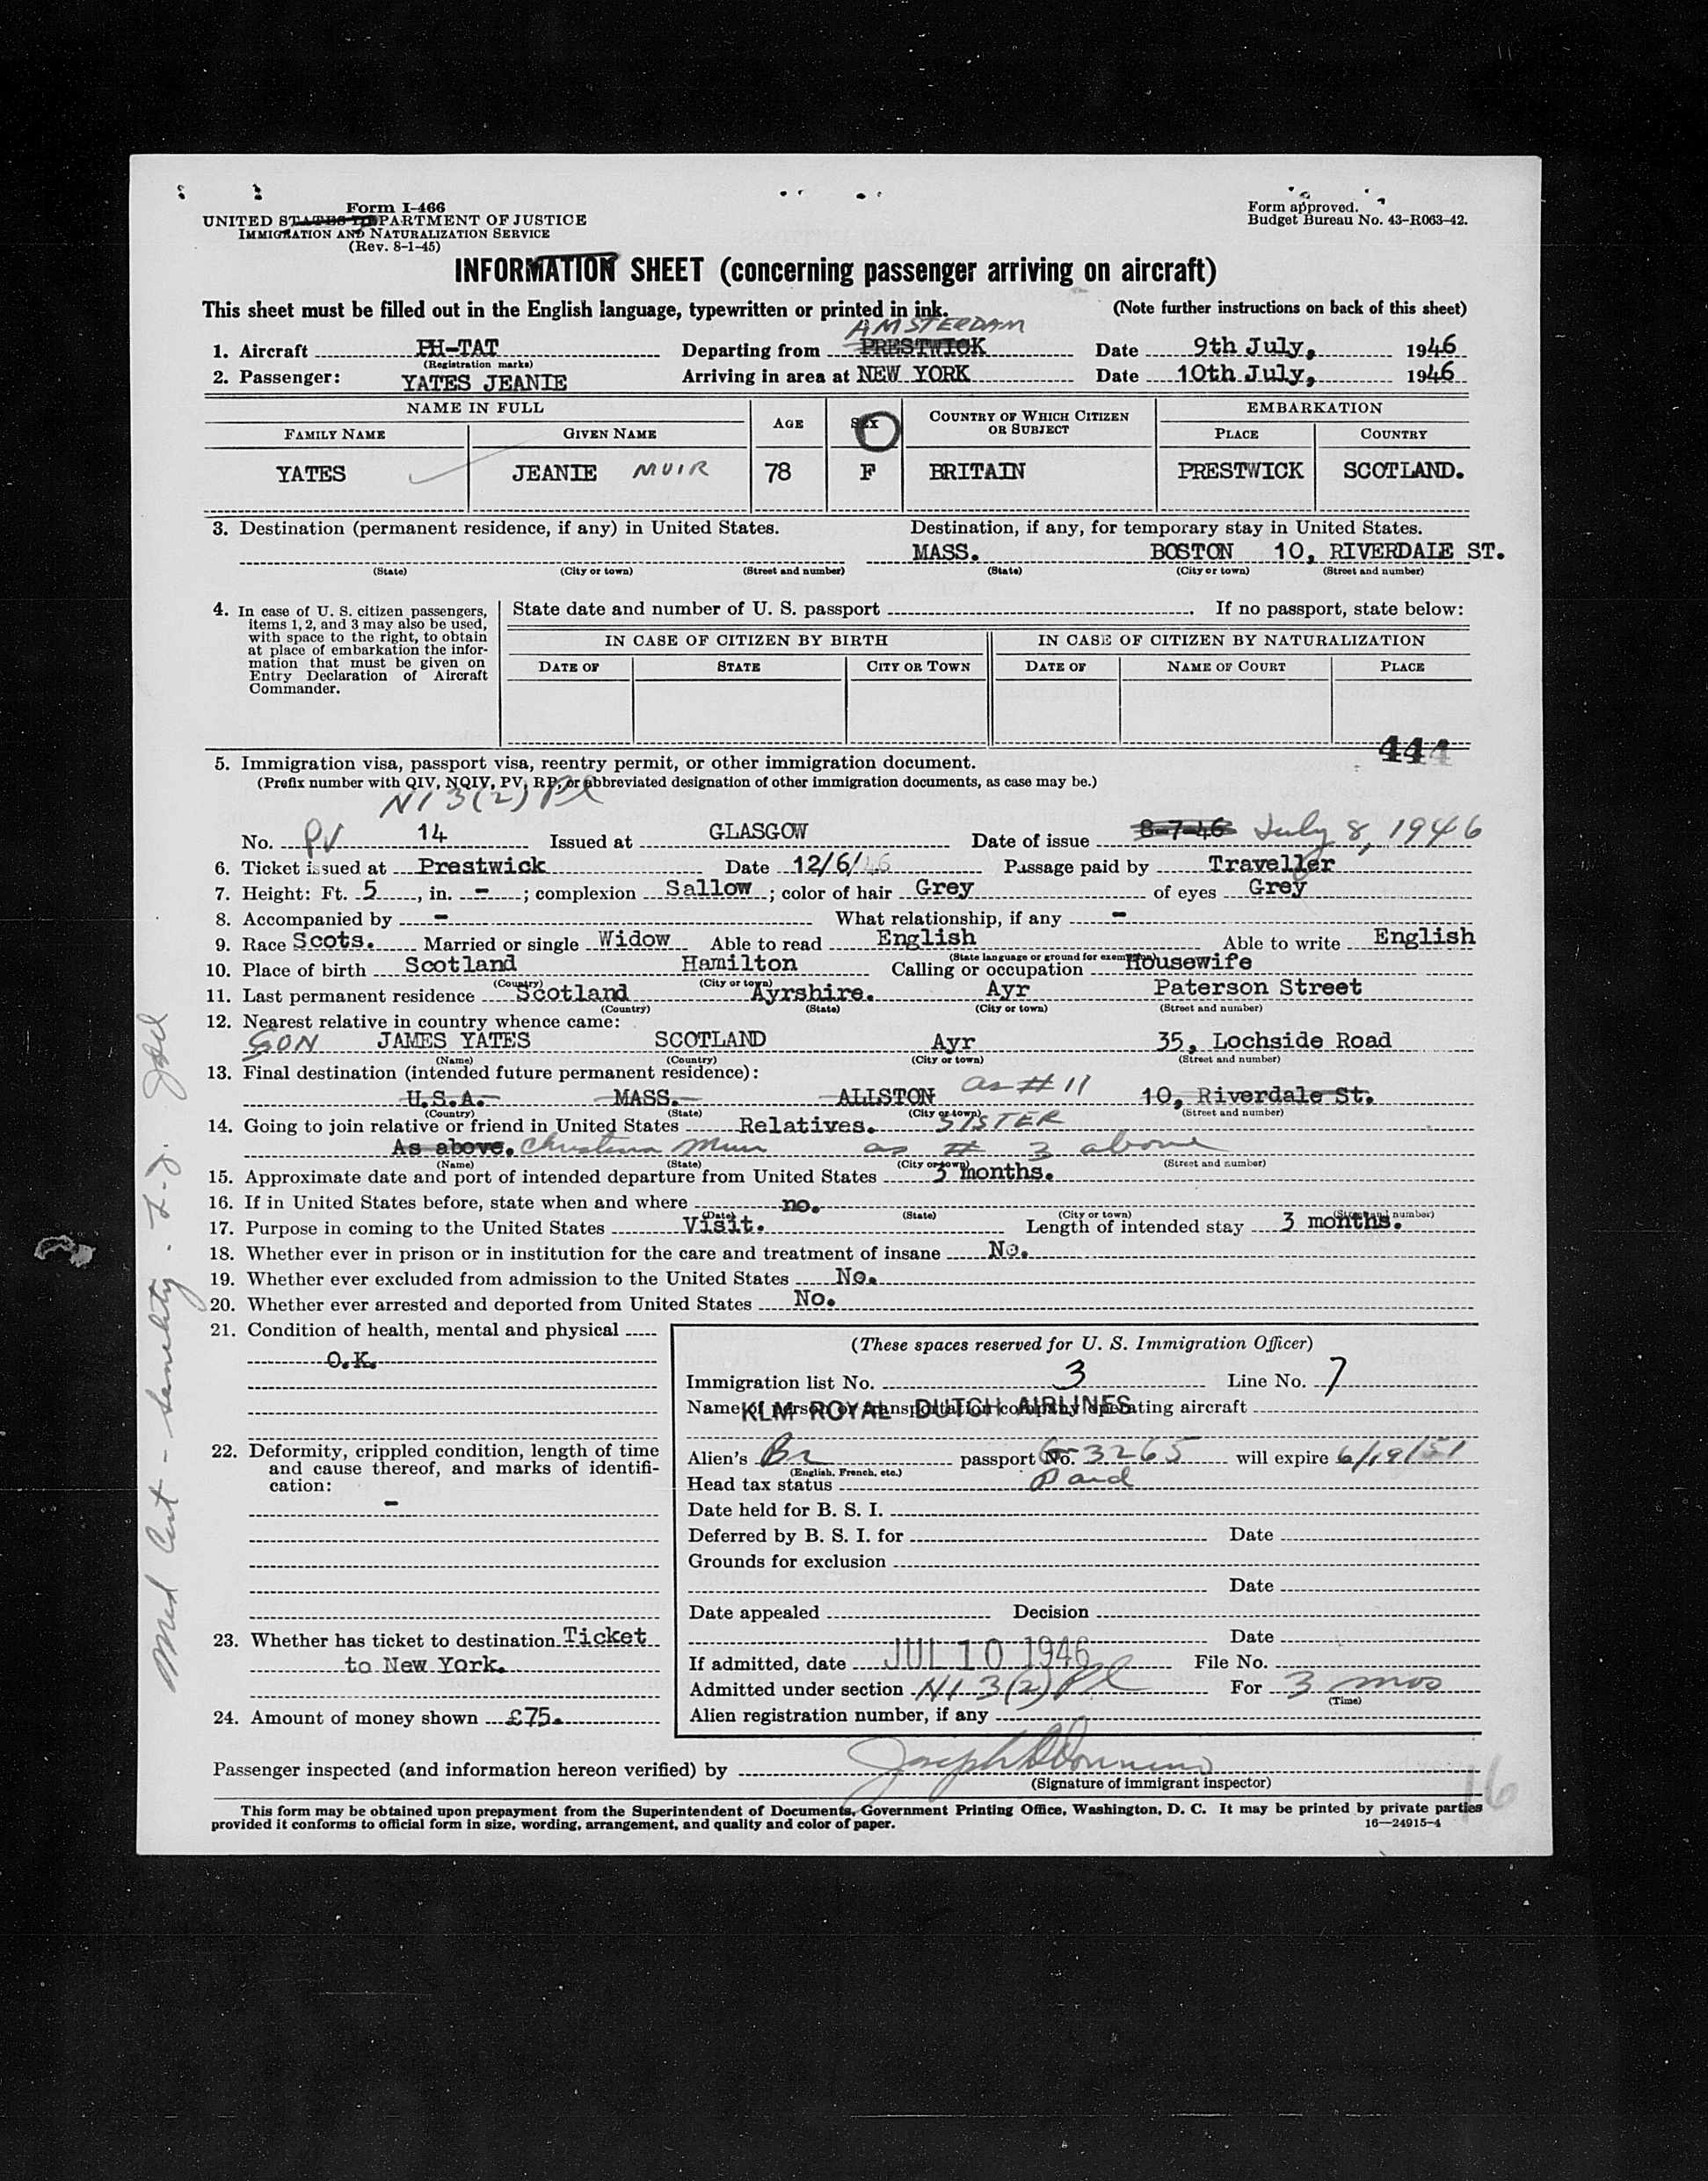 Form I-466
UNITED STATES DEPARTMENT OF JUSTICE
IMMIGRATION AND NATURALIZATION SERVICE
(Rev. 8-1-45)
Form approved.
Budget Bureau No. 43-R063-42.
INFORMATION SHEET (concerning passenger arriving on aircraft)
This sheet must be filled out in the English language, typewritten or printed in ink. (Note further instructions on back of this sheet)
AMSTERDAM
1. Aircraft PH-TAT Departing from PRESTWICK Date 9th July, 1946
(Registration marks)
2. Passenger: YATES JEANIE Arriving in area at NEW YORK Date 10th July, 1946
NAME IN FULL AGE SEX COUNTRY OF WHICH CITIZEN OR SUBJECT EMBARKATION
FAMILY NAME GIVEN NAME PLACE COUNTRY
YATES JEANIE MUIR 78 F BRITAIN PRESTWICK SCOTLAND.
3. Destination (permanent residence, if any) in United States. Destination, if any, for temporary stay in United States.
MASS. BOSTON 10, RIVERDALE ST.
(State) (City or town) (Street and number) (State) (City or town) (Street and number)
4. In case of U. S. citizen passengers, items 1, 2, and 3 may also be used, with space to the right, to obtain at place of embarkation the information that must be given on Entry Declaration of Aircraft Commander.
State date and number of U. S. passport If no passport, state below:
IN CASE OF CITIZEN BY BIRTH IN CASE OF CITIZEN BY NATURALIZATION
DATE OF STATE CITY OR TOWN DATE OF NAME OF COURT PLACE
444
5. Immigration visa, passport visa, reentry permit, or other immigration document.
(Prefix number with QIV, NQIV, PV, RP, or abbreviated designation of other immigration documents, as case may be.)
NI 3(2) Pl
No. PV 14 Issued at GLASGOW Date of issue 8-7-46 July 8, 1946
6. Ticket issued at Prestwick Date 12/6/46 Passage paid by Traveller
7. Height: Ft. 5, in. -; complexion Sallow; color of hair Grey of eyes Grey
8. Accompanied by - What relationship, if any -
9. Race Scots. Married or single Widow Able to read English Able to write English
(State language or ground for exemption)
10. Place of birth Scotland Hamilton Calling or occupation Housewife
(Country) (City or town)
11. Last permanent residence Scotland Ayrshire. Ayr Paterson Street
(Country) (State) (City or town) (Street and number)
12. Nearest relative in country whence came:
SON JAMES YATES SCOTLAND Ayr 35, Lochside Road
(Name) (Country) (City or town) (Street and number)
13. Final destination (intended future permanent residence):
U.S.A. MASS. ALLSTON as # 11 10, Riverdale St.
(Country) (State) (City or town) (Street and number)
14. Going to join relative or friend in United States Relatives. SISTER
As above. Christina Muir as # 3 above
(Name) (State) (City or town) (Street and number)
15. Approximate date and port of intended departure from United States 3 months.
16. If in United States before, state when and where no.
(Date) (State) (City or town) (Street and number)
17. Purpose in coming to the United States Visit. Length of intended stay 3 months.
18. Whether ever in prison or in institution for the care and treatment of insane No.
19. Whether ever excluded from admission to the United States No.
20. Whether ever arrested and deported from United States No.
21. Condition of health, mental and physical
O.K.
22. Deformity, crippled condition, length of time and cause thereof, and marks of identification:
-
23. Whether has ticket to destination Ticket
to New York.
24. Amount of money shown £75.
(These spaces reserved for U. S. Immigration Officer)
Immigration list No. 3 Line No. 7
Name of person or transportation company operating aircraft
KLM ROYAL DUTCH AIRLINES
Alien's Br passport No. G-3265 will expire 6/19/51
(English, French, etc.)
Head tax status Paid
Date held for B. S. I.
Deferred by B. S. I. for Date
Grounds for exclusion
Date
Date appealed Decision
Date
If admitted, date JUL 10 1946 File No.
Admitted under section NI 3(2) Pl For 3 mos
(Time)
Alien registration number, if any
Passenger inspected (and information hereon verified) by
(Signature of immigrant inspector)
16
This form may be obtained upon prepayment from the Superintendent of Documents, Government Printing Office, Washington, D. C. It may be printed by private parties
provided it conforms to official form in size, wording, arrangement, and quality and color of paper. 16—24915-4
Med Cert - Senility